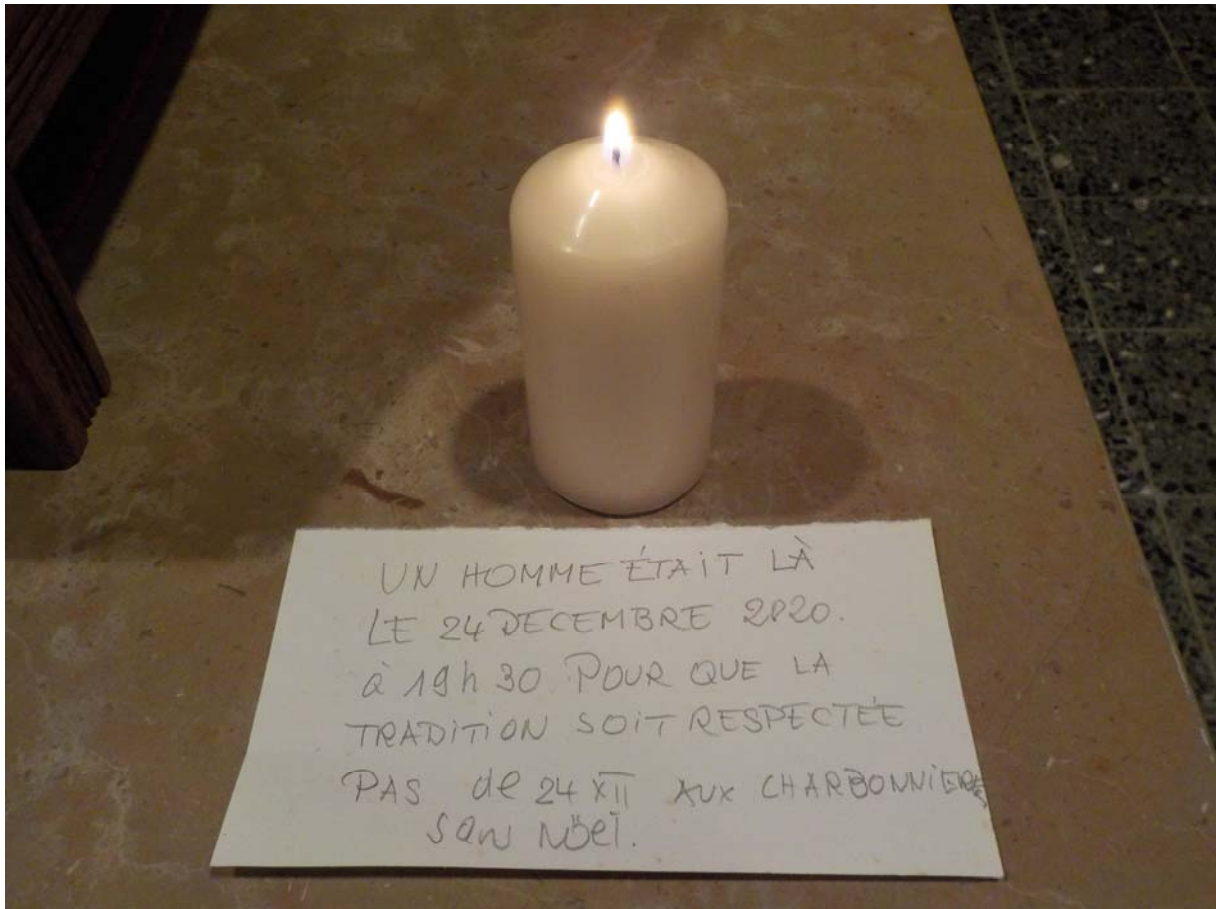 UN HOMME ÉTAIT LÀ
LE 24 DECEMBRE 2020.
à 19h30 POUR QUE LA
TRADITION SOIT RESPECTÉE
PAS de 24 XII AUX CHARBONNIERES
san Nöel.